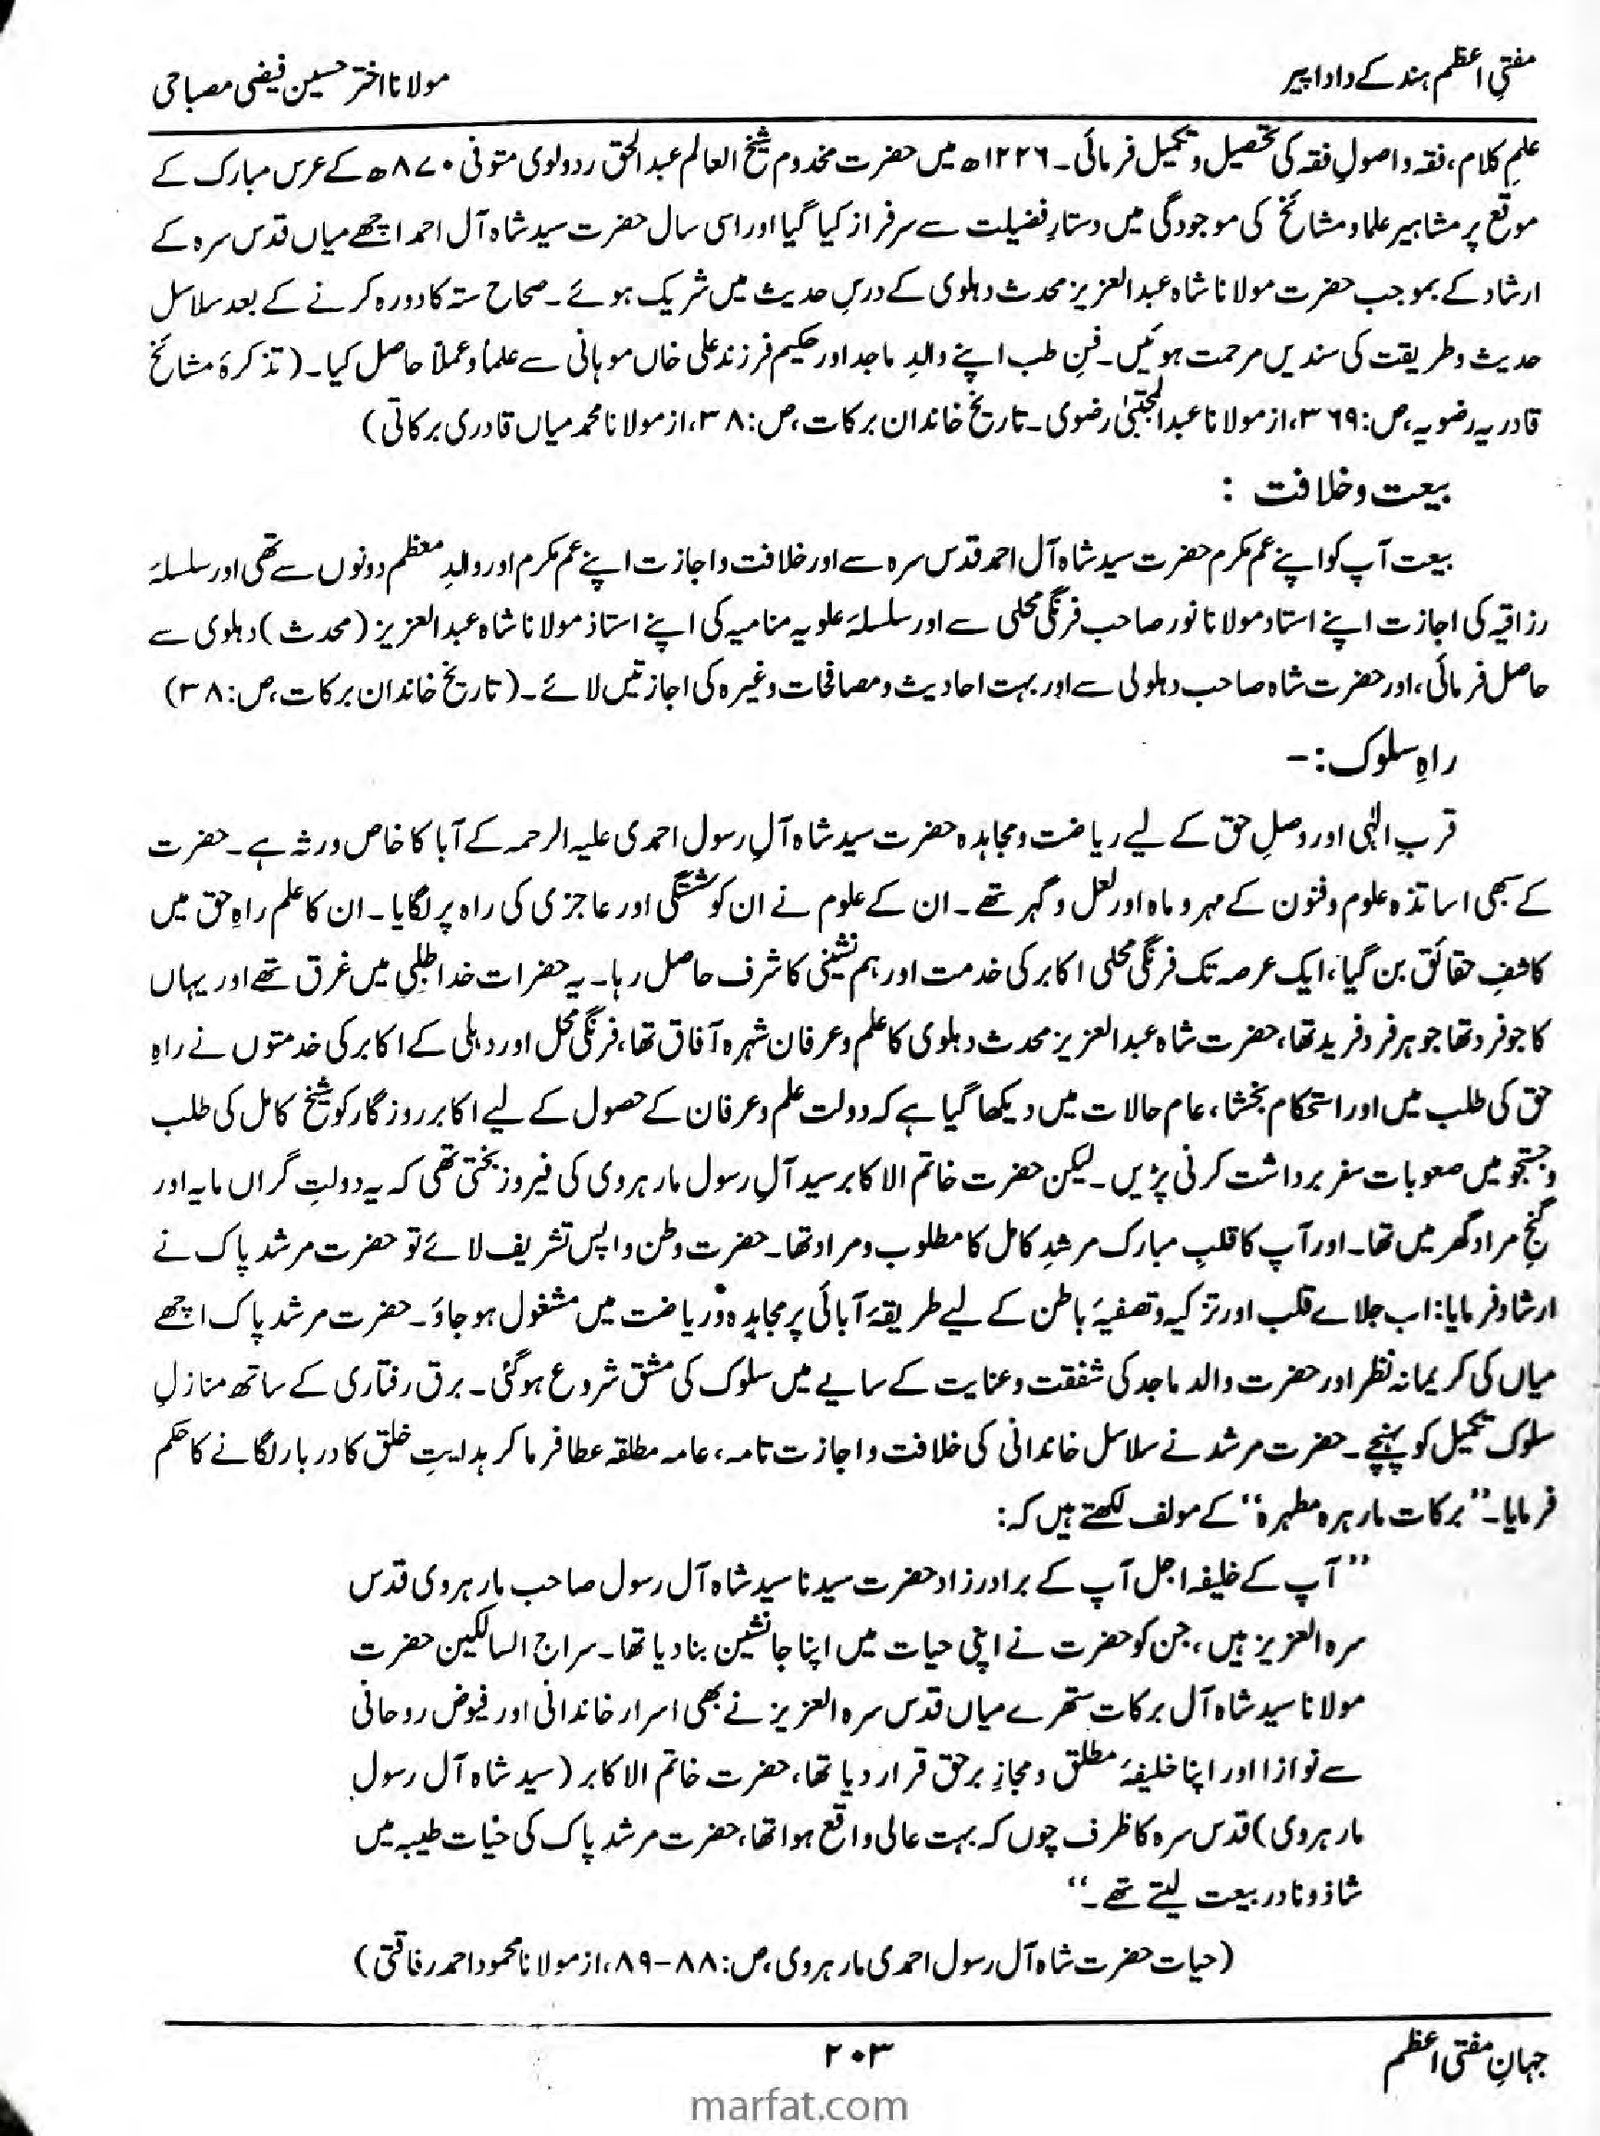 مفتیِ اعظم ہند کے دادا پیر
مولانا اختر حسین فیضی مصباحی
علمِ کلام، فقہ و اصولِ فقہ کی تحصیل و تکمیل فرمائی۔ ۱۲۲۶ھ میں حضرت مخدوم شیخ العالم عبدالحق ردولوی متوفی ۸۷۰ھ کے عرس مبارک کے
موقع پر مشاہیر علما و مشائخ کی موجودگی میں دستارِ فضیلت سے سرفراز کیا گیا اور اسی سال حضرت سید شاہ آل احمد اچھے میاں قدس سرہ کے
ارشاد کے بموجب حضرت مولانا شاہ عبدالعزیز محدث دہلوی کے درسِ حدیث میں شریک ہوئے۔ صحاح ستہ کا دورہ کرنے کے بعد سلاسل
حدیث و طریقت کی سندیں مرحمت ہوئیں۔ فنِ طب اپنے والدِ ماجد اور حکیم فرزند علی خاں موہانی سے علماً و عملاً حاصل کیا۔ (تذکرۂ مشائخ
قادریہ رضویہ، ص: ۳۶۹، از مولانا عبدالمجتبیٰ رضوی۔ تاریخ خاندان برکات، ص: ۳۸، از مولانا محمد میاں قادری برکاتی)
بیعت و خلافت :
بیعت آپ کو اپنے عم مکرم حضرت سید شاہ آل احمد قدس سرہ سے اور خلافت و اجازت اپنے عم مکرم اور والدِ معظم دونوں سے تھی اور سلسلۂ
رزاقیہ کی اجازت اپنے استاد مولانا نور صاحب فرنگی محلی سے اور سلسلۂ علویہ منامیہ کی اپنے استاذ مولانا شاہ عبدالعزیز (محدث) دہلوی سے
حاصل فرمائی، اور حضرت شاہ صاحب دہلولی سے اور بہت احادیث و مصافحات وغیرہ کی اجازتیں لائے۔ (تاریخ خاندان برکات، ص: ۳۸)
راہِ سلوک :–
قربِ الٰہی اور وصلِ حق کے لیے ریاضت و مجاہدہ حضرت سید شاہ آلِ رسول احمدی علیہ الرحمہ کے آبا کا خاص ورثہ ہے۔ حضرت
کے سبھی اساتذہ علوم و فنون کے مہر و ماہ اور لعل و گہر تھے۔ ان کے علوم نے ان کو شستگی اور عاجزی کی راہ پر لگایا۔ ان کا علم راہِ حق میں
کاشفِ حقائق بن گیا، ایک عرصہ تک فرنگی محلی اکابر کی خدمت اور ہم نشینی کا شرف حاصل رہا۔ یہ حضرات خدا طلبی میں غرق تھے اور یہاں
کا جو فرد تھا جو ہر فرد فرید تھا، حضرت شاہ عبدالعزیز محدث دہلوی کا علم و عرفان شہرہ آفاق تھا، فرنگی محل اور دہلی کے اکابر کی خدمتوں نے راہِ
حق کی طلب میں اور استحکام بخشا، عام حالات میں دیکھا گیا ہے کہ دولت علم و عرفان کے حصول کے لیے اکابر روزگار کو شیخ کامل کی طلب
و جستجو میں صعوبات سفر برداشت کرنی پڑیں۔ لیکن حضرت خاتم الاکابر سید آلِ رسول مارہروی کی فیروز بختی تھی کہ یہ دولتِ گراں مایہ اور
گنجِ مراد گھر میں تھا۔ اور آپ کا قلبِ مبارک مرشدِ کامل کا مطلوب و مراد تھا۔ حضرت وطن واپس تشریف لائے تو حضرت مرشد پاک نے
ارشاد فرمایا: اب جلاے قلب اور تزکیہ و تصفیۂ باطن کے لیے طریقۂ آبائی پر مجاہدہ و ریاضت میں مشغول ہو جاؤ۔ حضرت مرشد پاک اچھے
میاں کی کریمانہ نظر اور حضرت والد ماجد کی شفقت و عنایت کے سایے میں سلوک کی مشق شروع ہو گئی۔ برق رفتاری کے ساتھ منازلِ
سلوک تکمیل کو پہنچے۔ حضرت مرشد نے سلاسل خاندانی کی خلافت و اجازت تامہ، عامہ مطلقہ عطا فرما کر ہدایتِ خلق کا دربار لگانے کا حکم
فرمایا۔ ”برکات مارہرہ مطہرہ“ کے مولف لکھتے ہیں کہ:
”آپ کے خلیفہ اجل آپ کے برادرزاد حضرت سیدنا سید شاہ آل رسول صاحب مارہروی قدس
سرہ العزیز ہیں، جن کو حضرت نے اپنی حیات میں اپنا جانشین بنا دیا تھا۔ سراج السالکین حضرت
مولانا سید شاہ آل برکات ستھرے میاں قدس سرہ العزیز نے بھی اسرار خاندانی اور فیوض روحانی
سے نوازا اور اپنا خلیفۂ مطلق و مجازِ برحق قرار دیا تھا، حضرت خاتم الاکابر (سید شاہ آل رسول
مارہروی) قدس سرہ کا ظرف چوں کہ بہت عالی واقع ہوا تھا، حضرت مرشد پاک کی حیات طیبہ میں
شاذ و نادر بیعت لیتے تھے۔“
(حیات حضرت شاہ آل رسول احمدی مارہروی، ص: ۸۸–۸۹، از مولانا محمود احمد رفاقتی)
جہانِ مفتی اعظم
۲۰۳
marfat.com